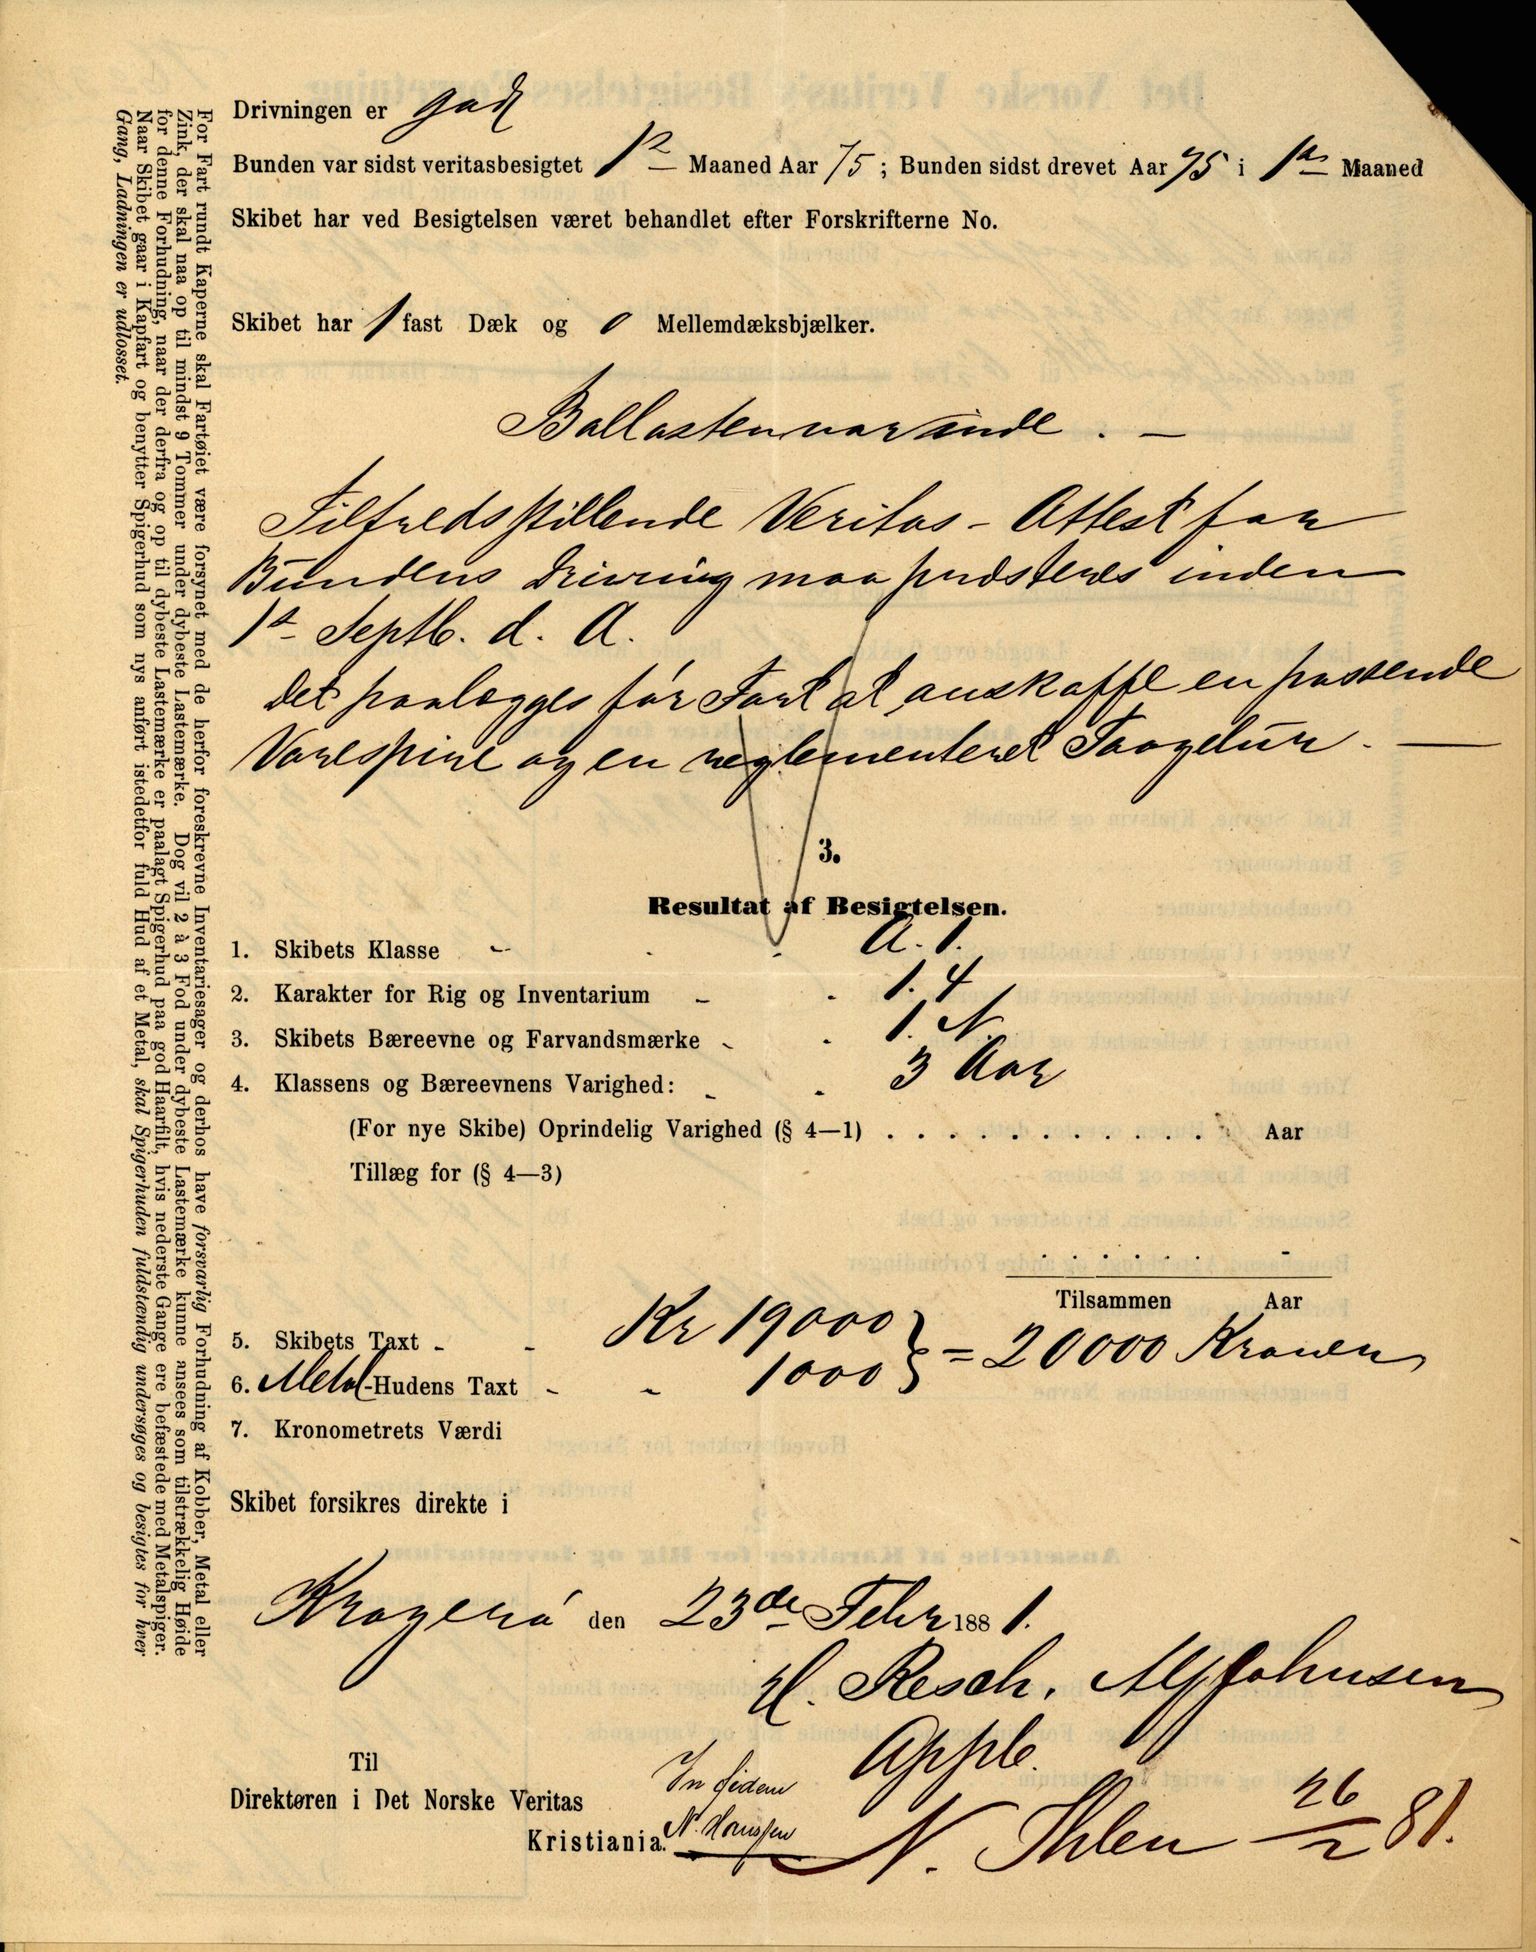 Drivningen er god
Bunden var sidst veritasbesigtet 1ste Maaned Aar 75; Bunden sidst drevet Aar 75 i 1ste Maaned
Skibet har ved Besigtelsen været behandlet efter Forskrifterne No.
Skibet har 1 fast Dæk og 0 Mellemdæksbjælker.
Ballasten var inde. —
Tilfredsstillende Veritas-Attest for
Bundens Drivning maa præsteres inden
1ste Septb. d. A.
Det paalægges før Fart at anskaffe en passende
Varespire og en reglementeret Taagelur. —
3.
Resultat af Besigtelsen.
1. Skibets Klasse - - - A. 1.
2. Karakter for Rig og Inventarium - - 1. 4
3. Skibets Bæreevne og Farvandsmærke - - 1. N.
4. Klassens og Bæreevnens Varighed: - - 3 Aar
(For nye Skibe) Oprindelig Varighed (§ 4—1) . . . . . . . . . . . . Aar
Tillæg for (§ 4—3)
. . . . . . -
Tilsammen Aar
5. Skibets Taxt - - Kr 19000 } = 20000 Kroner
6. Metal-Hudens Taxt - - 1000
7. Kronometrets Værdi
Skibet forsikres direkte i
Kragerø den 23de Febr 1881.
H. Resch. Alf Johnsen
Appb.
Til
Direktøren i Det Norske Veritas
Kristiania.
In fidem
N. Hanssen
N. Ihlen 26/2 81.
For Fart rundt Kaperne skal Fartøiet være forsynet med de herfor foreskrevne Inventariesager og derhos have forsvarlig Forhudning af Kobber, Metal eller
Zink, der skal naa op til mindst 9 Tommer under dybeste Lastemærke. Dog vil 2 à 3 Fod under dybeste Lastemærke kunne ansees som tilstrækkelig Høide
for denne Forhudning, naar der derfra og op til dybeste Lastemærke er paalagt Spigerhud paa god Haarfilt, hvis nederste Gange ere befæstede med Metalspiger.
Naar Skibet gaar i Kapfart og benytter Spigerhud som nys anført istedetfor fuld Hud af et Metal, skal Spigerhuden fuldstændig undersøges og besigtes for hver
Gang, Ladningen er udlosset.